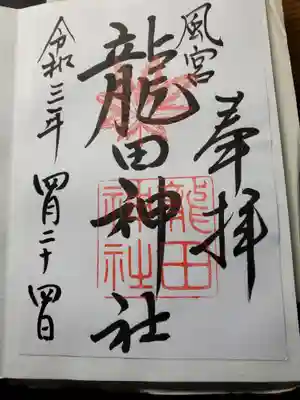 奉拝
風宮
龍田神社
令和三年四月二十四日
龍田
神社